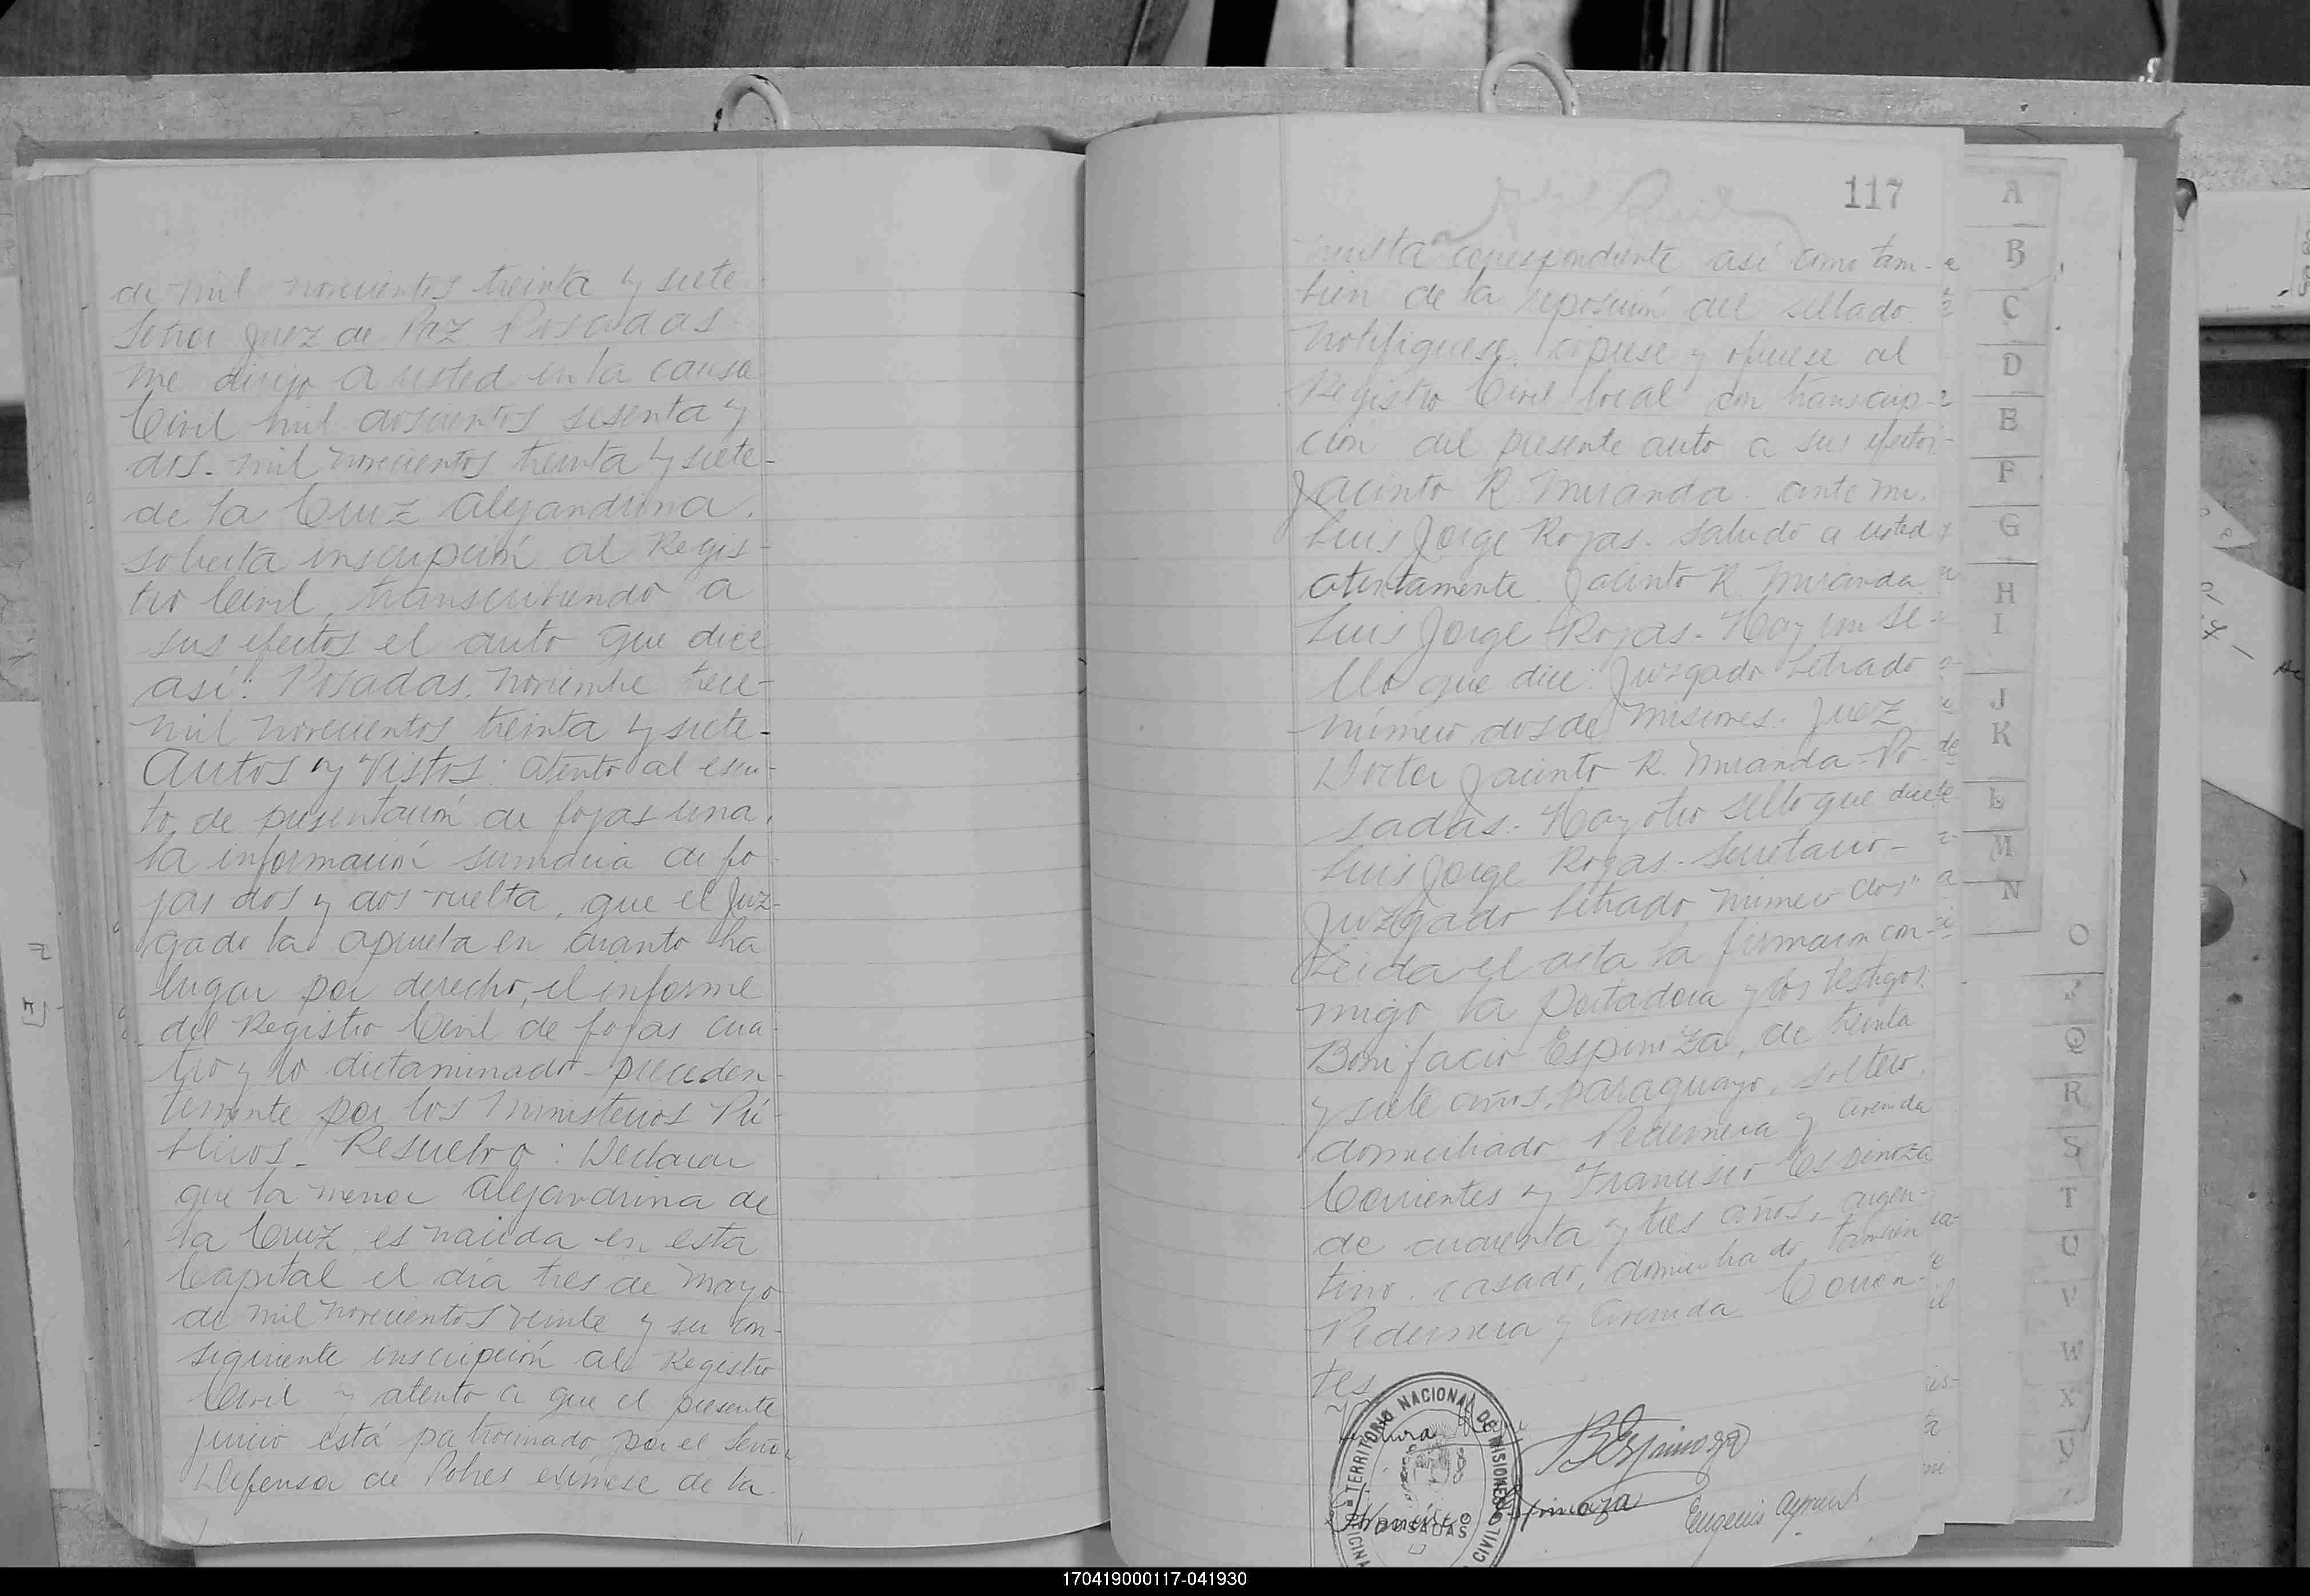 de mil novecientos treinta y siete.
Señor Juez de Paz. Posadas
me dirijo a usted en la causa
Civil mil doscientos sesenta y
dos. mil novecientos treinta y siete-
de la Cruz Alejandrina.
solicita inscripción al Regis-
tro Civil, transcribiendo a
sus efectos el auto que dice
así: Posadas, noviembre trece-
mil novecientos treinta y siete-
Autos y Vistos: atento al escri-
to de presentación de fojas una,
la información sumaria de fo-
jas dos y dos vuelta, que el Juz-
gado la aprueba en cuanto ha
lugar por derecho, el informe
del Registro Civil de fojas cua-
tro y lo dictaminado preceden-
temente por los Ministerios Pú-
blicos. Resuelvo: Declarar
que la menor Alejandrina de
la Cruz, es nacida en esta
Capital el día tres de mayo
de mil novecientos veinte y su con-
siguiente inscripción al Registro
Civil y atento a que el presente
juicio está patrocinado por el Señor
Defensor de Pobres exímese de la
117
multa correspondiente así como tam-
bién de la reposición del sellado.
Notifíquese, cópiese y ofíciese al
Registro Civil local con transcrip-
ción del presente auto a sus efectos-
Jacinto R. Miranda. ante mi.
Luis Jorge Rojas. Saludo a usted
atentamente. Jacinto R. Miranda.
Luis Jorge Rojas. Hay un se-
llo que dice: Juzgado Letrado
número dos de Misiones. Juez
Doctor Jacinto R. Miranda-Po-
sadas. Hay otro sello que dice
Luis Jorge Rojas. Secretario-
Juzgado Letrado número dos"
Leida el acta la firmaron con-
migo, la Portadora y los testigos:
Bonifacio Espinoza, de treinta
y siete años, paraguayo, soltero,
domiciliado Pedernera y Avenida
Corrientes y Francisco Espinoza
de cuarenta y tres años, argen-
tino, casado, domiciliado, también
Pedernera y Avenida Corrien-
tes
TERRITORIO NACIONAL DE MISIONES
POSADAS
B Espinoza
Francisco Espinoza
Eugenio
A
B
C
D
E
F
G
H
I
J
K
L
M
N
O
Q
R
S
T
U
V
W
X
Y
170419000117-041930